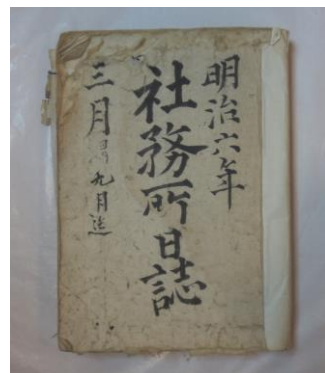 明治六年
社務所日誌
三月ヨリ九月迄